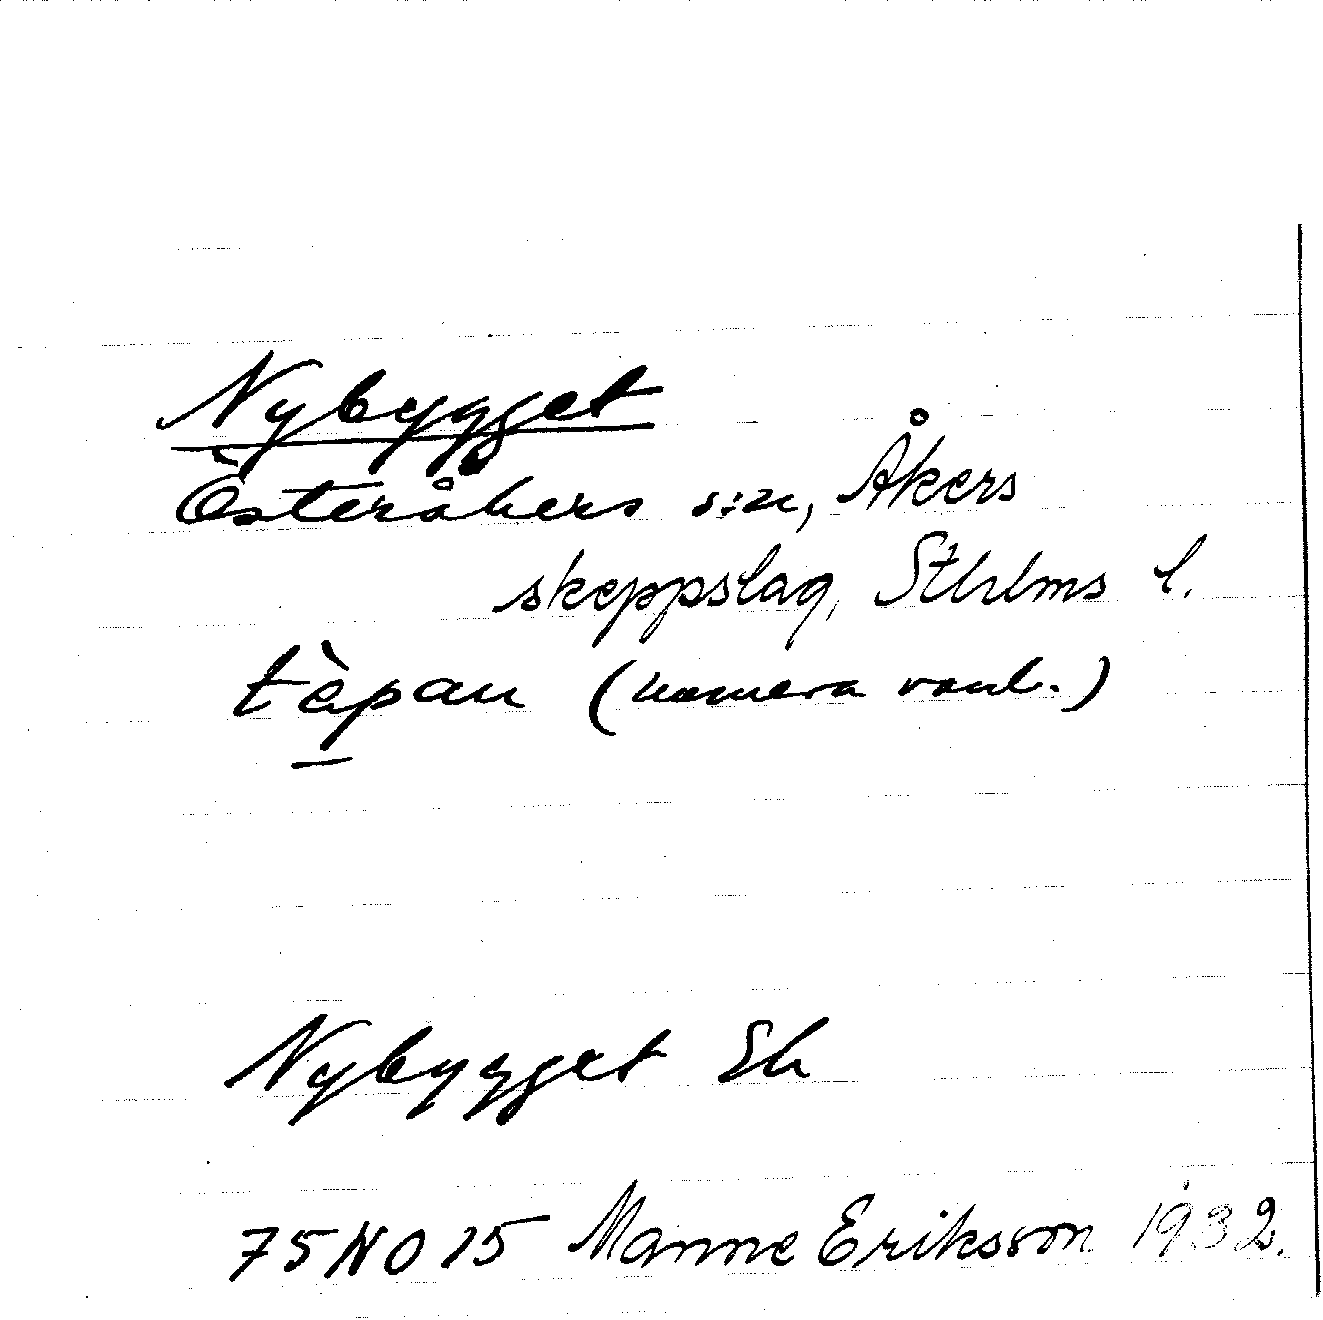 Nybygget
Österåkers s:n, Åkers
skeppslag, Sthlms l.
tèpan (numera vanl.)
Nybygget Ek
75 NO 15 Manne Eriksson 1932.